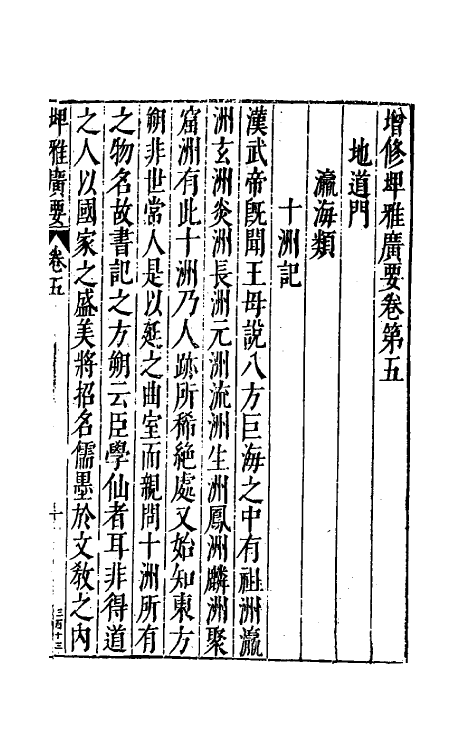 增修埤雅廣要卷第五
地道門
瀛海類
十洲記
漢武帝既聞王母說八方巨海之中有祖洲瀛
洲玄洲炎洲長洲元洲流洲生洲鳳洲麟洲聚
窟洲有此十洲乃人跡所稀絕處又始知東方
朔非世常人是以延之曲室而親問十洲所有
之物名故書記之方朔云臣學仙者耳非得道
之人以國家之盛美將招名儒墨於文敎之內
埤雅廣要 卷五
三百十三